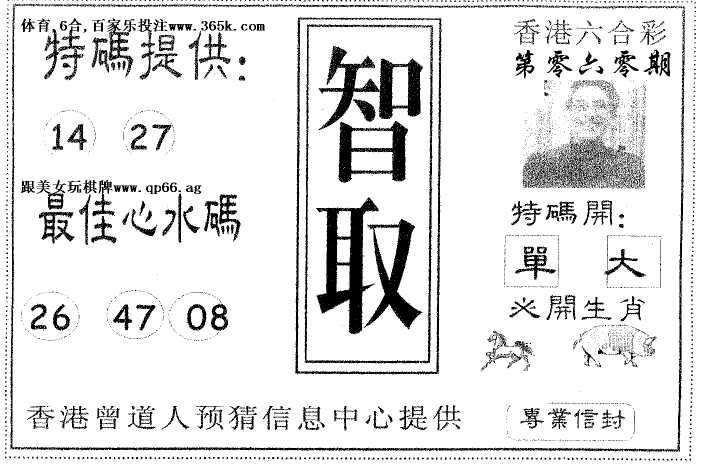 体育,6合,百家乐投注www.365k.com
特碼提供:
14 27
跟美女玩棋牌www.qp66.ag
最佳心水碼
26 47 08
智取
香港六合彩
第零六零期
特碼開:
單 大
必開生肖
香港曾道人预猜信息中心提供
專業信封